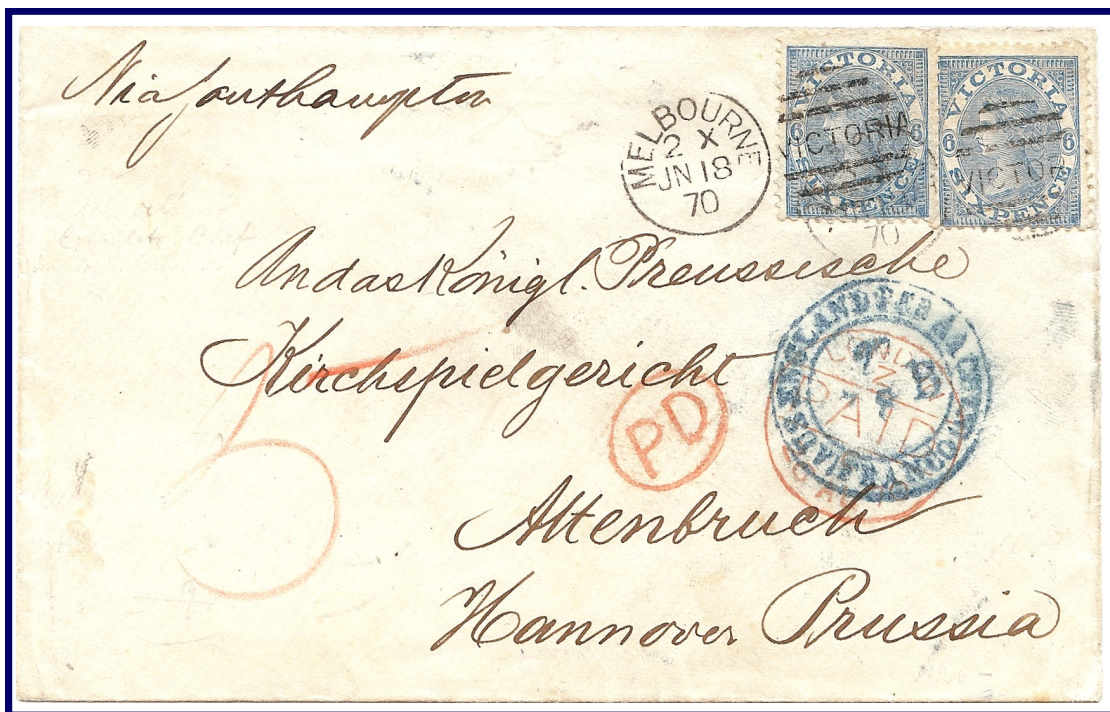 Via Southampton
MELBOURNE
2 X
JN 18
70
VICTORIA
6 6
SIXPENCE
VICTORIA
VICTORIA
6 6
SIXPENCE
VICTOR
70
An das Königl. Preussische
Kirchspielgericht
ENGLAND PER AACHEN
FRANCO
B
PAID
PD
Altenbruch
Hannover Prussia